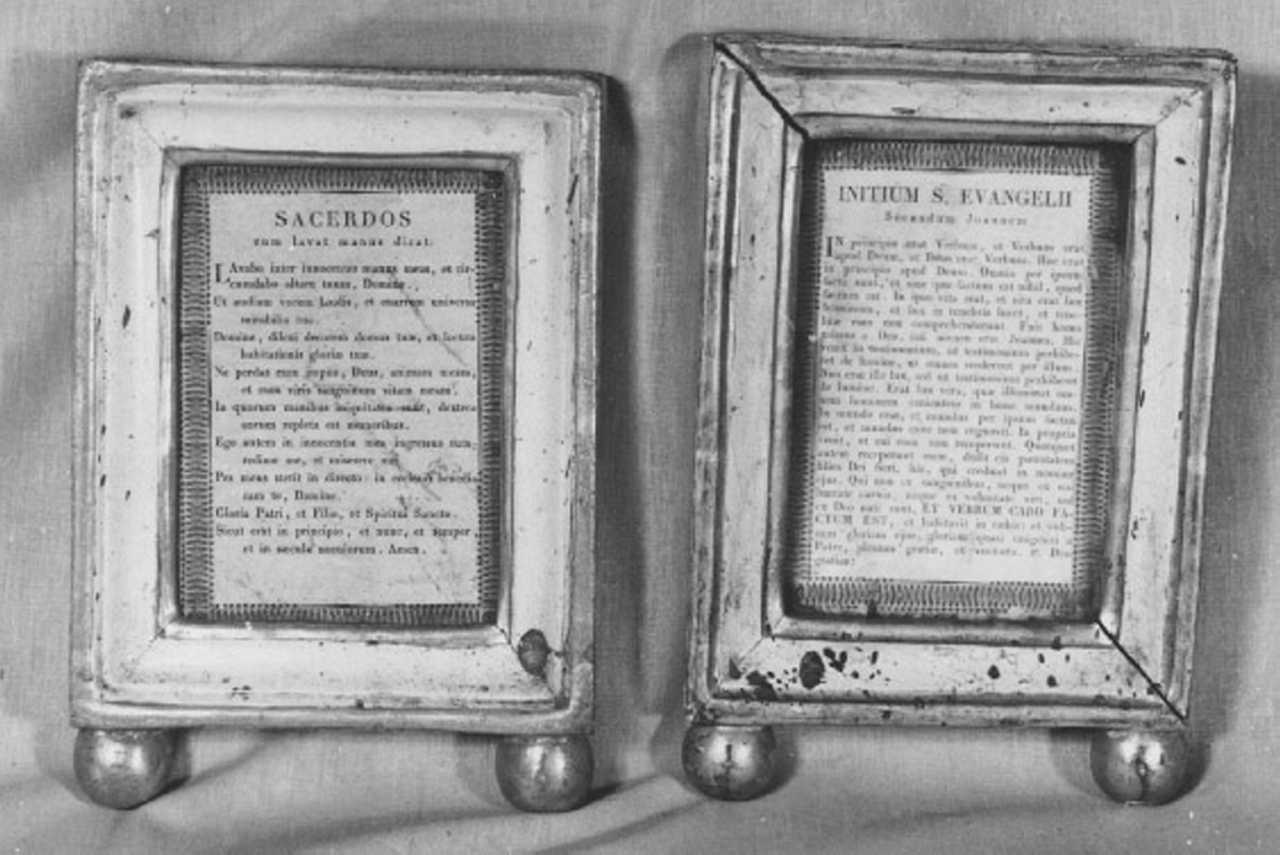 SACERDOS
cum lavat manus dicat.
LAvabo inter innocentes manus meas, et cir-
cumdabo altare tuum, Domine.
Ut audiam vocem laudis, et enarrem universa
mirabilia tua.
Domine, dilexi decorem domus tuæ, et locum
habitationis gloriæ tuæ.
Ne perdas cum impiis, Deus, animam meam,
et cum viris sanguinum vitam meam.
In quorum manibus iniquitates sunt, dextera
eorum repleta est muneribus.
Ego autem in innocentia mea ingressus sum,
redime me, et miserere mei.
Pes meus stetit in directo: in ecclesiis benedi-
cam te, Domine.
Gloria Patri, et Filio, et Spiritui Sancto.
Sicut erat in principio, et nunc, et semper,
et in sæcula sæculorum. Amen.
INITIUM S. EVANGELII
Secundum Joannem
IN principio erat Verbum, et Verbum erat
apud Deum, et Deus erat Verbum. Hoc erat
in principio apud Deum. Omnia per ipsum
facta sunt, et sine ipso factum est nihil, quod
factum est. In ipso vita erat, et vita erat lux
hominum, et lux in tenebris lucet, et tene-
bræ eam non comprehenderunt. Fuit homo
missus a Deo, cui nomen erat Joannes. Hic
venit in testimonium, ut testimonium perhibe-
ret de lumine, ut omnes crederent per illum.
Non erat ille lux, sed ut testimonium perhiberet
de lumine. Erat lux vera, quæ illuminat om-
nem hominem venientem in hunc mundum.
In mundo erat, et mundus per ipsum factus
est, et mundus eum non cognovit. In propria
venit, et sui eum non receperunt. Quotquot
autem receperunt eum, dedit eis potestatem
filios Dei fieri, his, qui credunt in nomine
ejus. Qui non ex sanguinibus, neque ex vo-
luntate carnis, neque ex voluntate viri, sed
ex Deo nati sunt. ET VERBUM CARO FA-
CTUM EST, et habitavit in nobis: et vidi-
mus gloriam ejus, gloriam quasi unigeniti a
Patre, plenum gratiæ, et veritatis. ℟. Deo
gratias.